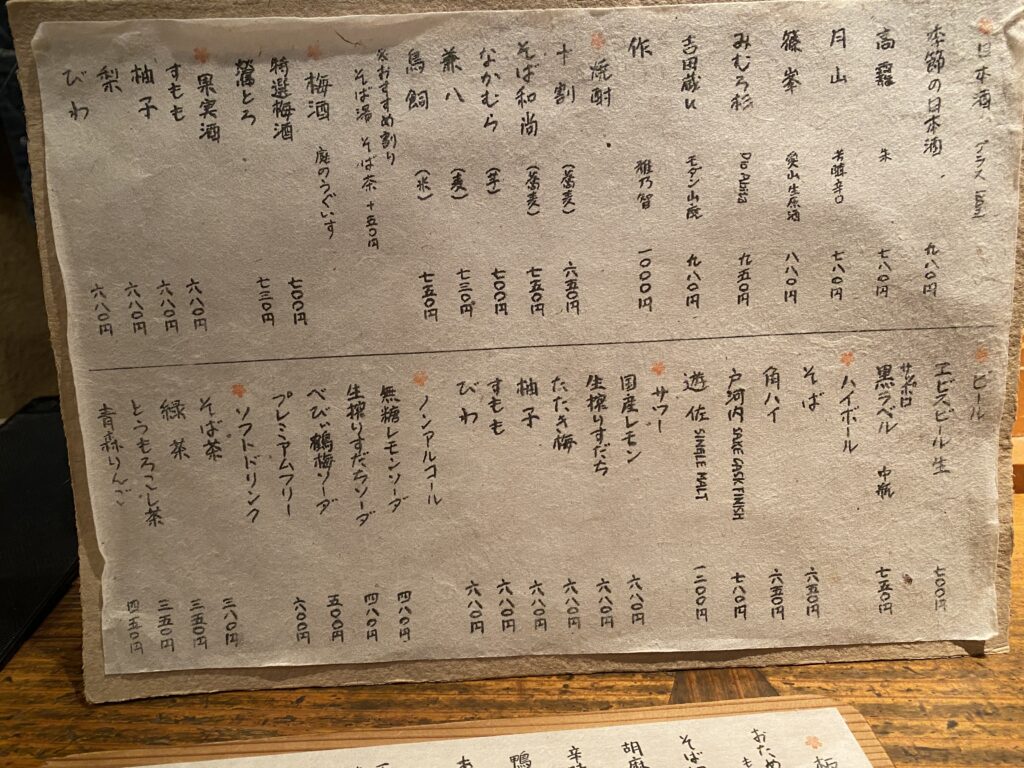 日本酒 グラス
季節の日本酒 九八〇円
高 朱 七八〇円
月山 芳醇辛口 七八〇円
篠峯 愛山生原酒 八八〇円
みむろ杉 Dio Abita 九五〇円
吉田蔵u モダン山廃 九八〇円
作 雅乃智 一〇〇〇円
焼酎
十割 (蕎麦) 六五〇円
そば和尚 (蕎麦) 七五〇円
なかむら (芋) 七〇〇円
兼八 (麦) 七三〇円
鳥飼 (米) 七五〇円
※おすすめ割り
そば湯 そば茶 +五〇円
梅酒 庭のうぐいす
特選梅酒 七〇〇円
鶯とろ 七三〇円
果実酒
すもも 六八〇円
柚子 六八〇円
梨 六八〇円
びわ 六八〇円
ビール
ヱビスビール 生 七〇〇円
サッポロ
黒ラベル 中瓶 七五〇円
ハイボール
そば 六五〇円
角ハイ 六五〇円
戸河内 SAKE CASK FINISH 七八〇円
遊佐 SINGLE MALT 一二〇〇円
サワー
国産レモン 六八〇円
生搾りすだち 六八〇円
たたき梅 六八〇円
柚子 六八〇円
すもも 六八〇円
びわ 六八〇円
ノンアルコール
無糖レモンソーダ 四八〇円
生搾りすだちソーダ 四八〇円
べびぃ鶴梅ソーダ 五〇〇円
プレミアムフリー 六〇〇円
ソフトドリンク
そば茶 三八〇円
緑茶 三五〇円
とうもろこし茶 三五〇円
青森りんご 四五〇円
おため
そば
胡麻
鴨